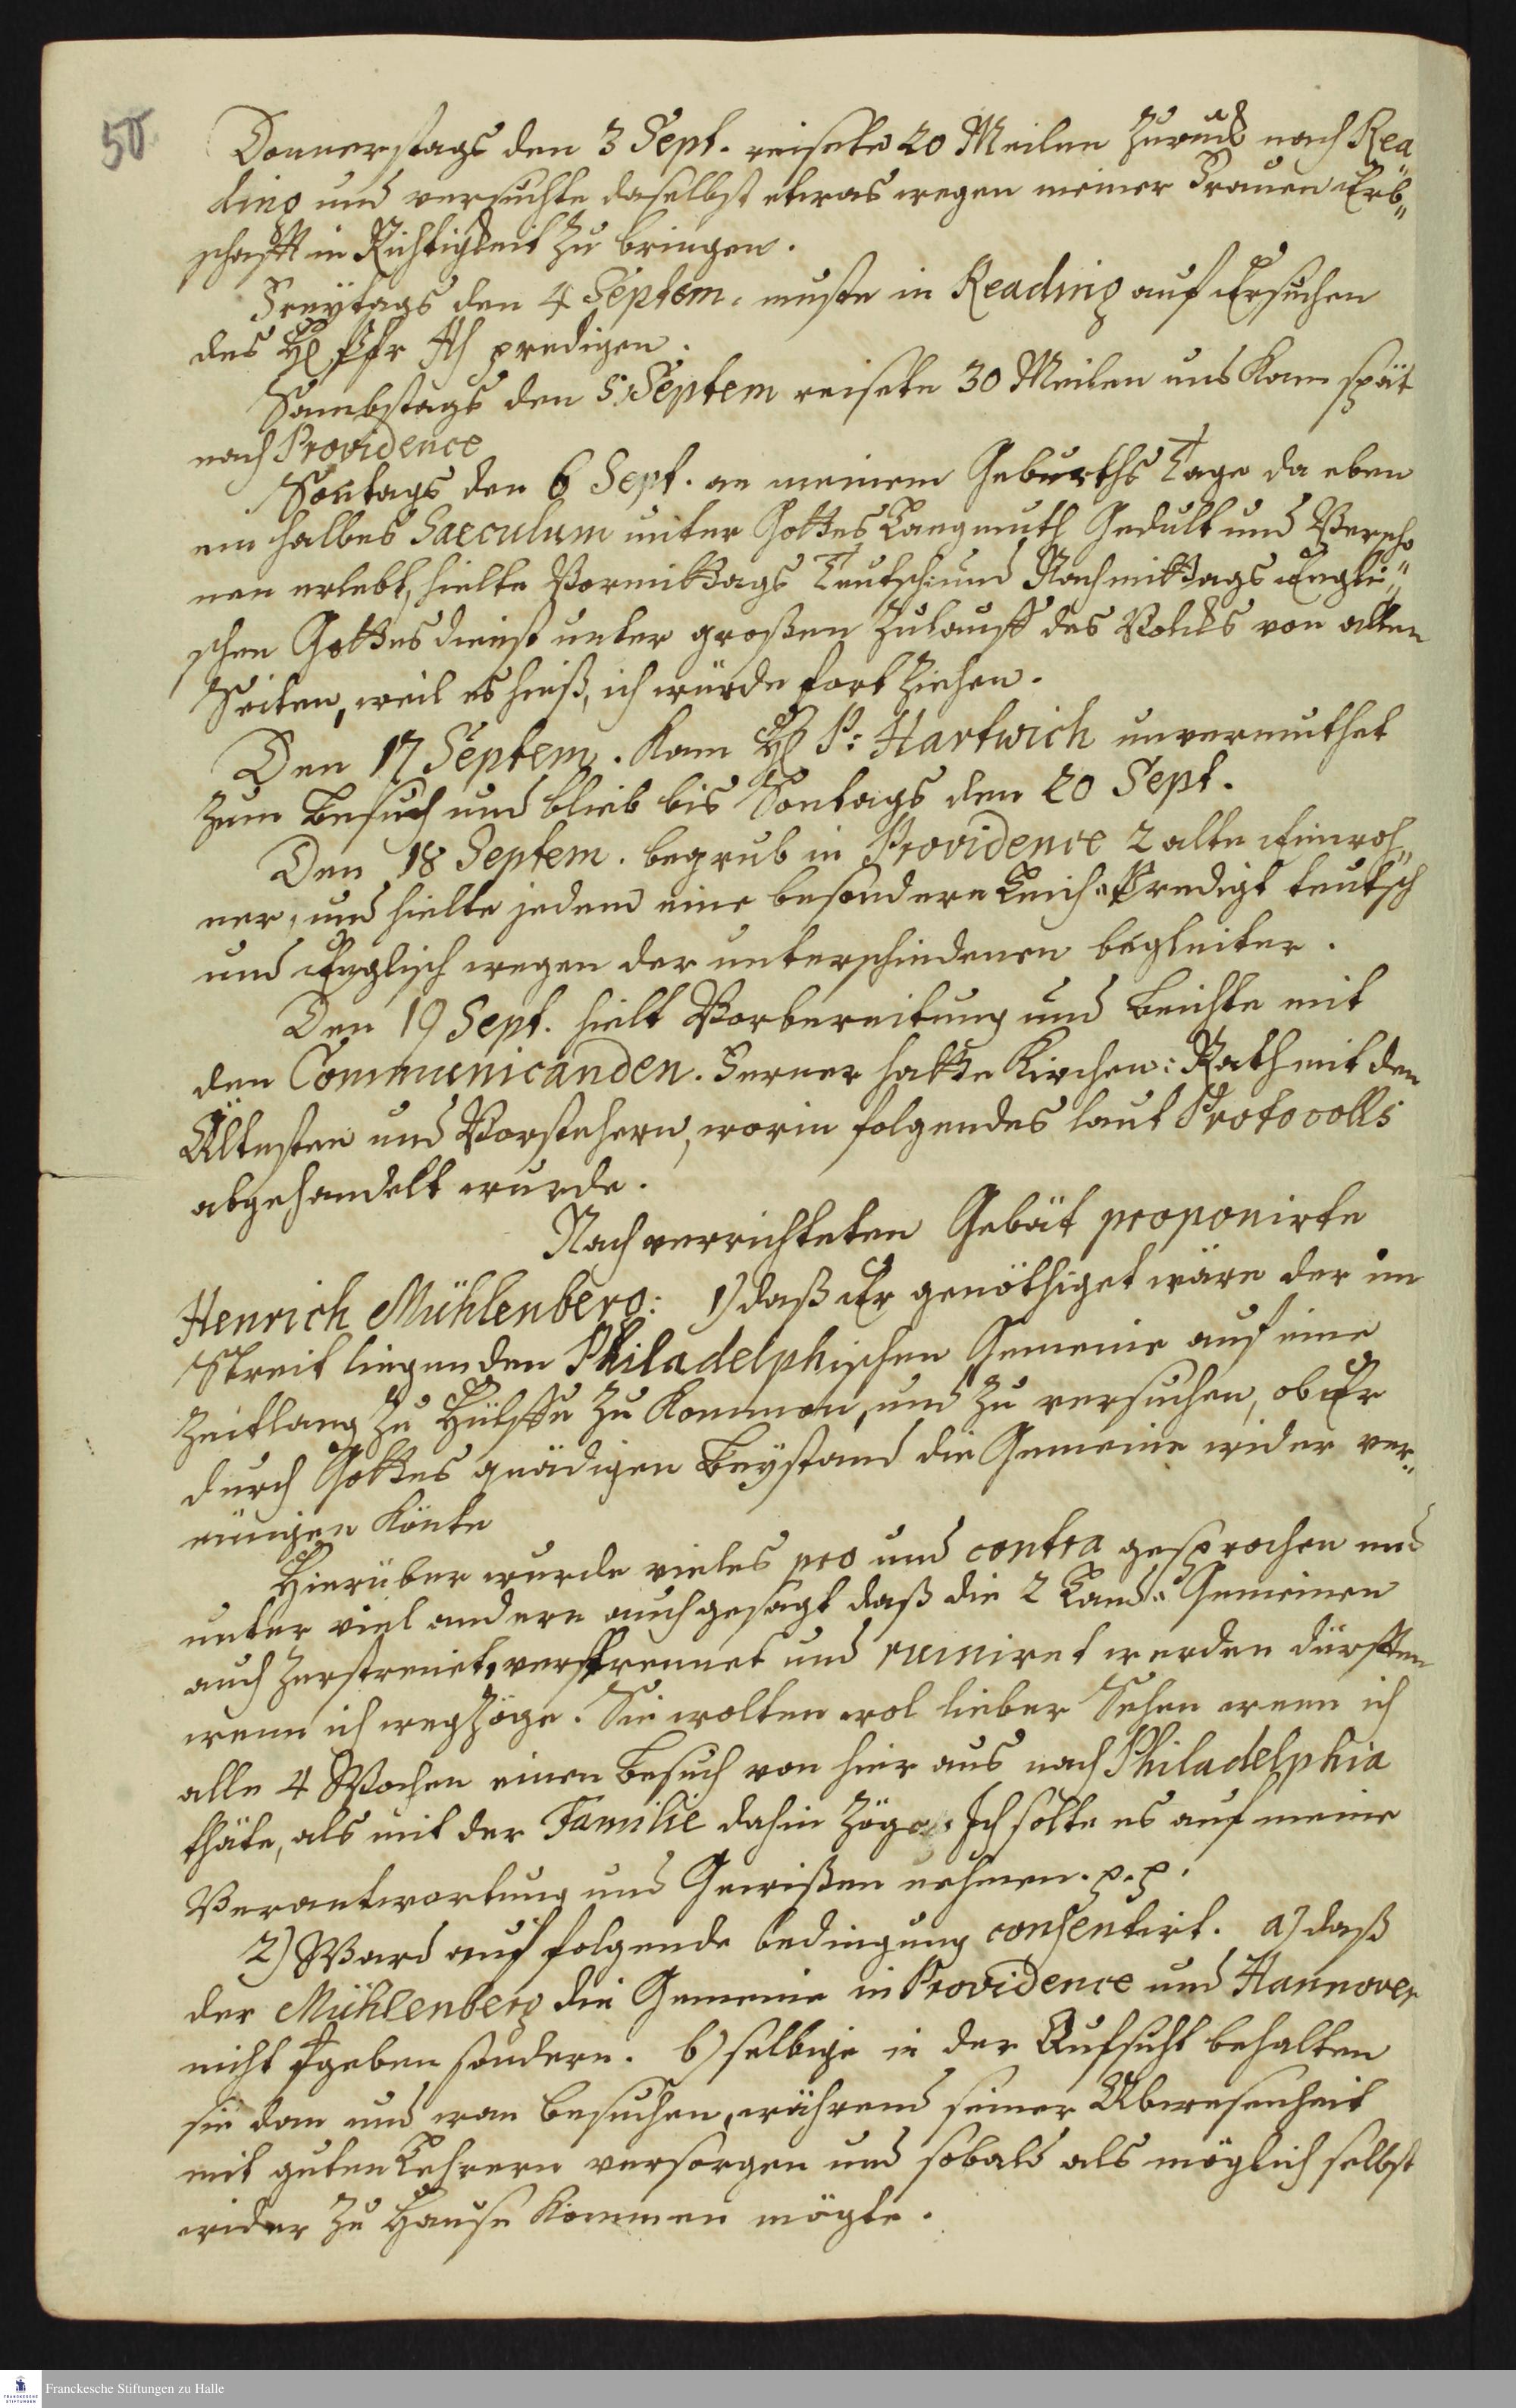 50
Donnerstags den 3 Sept. reisete 20 Meilen zurück nach Rea
ding und versuchte daselbst etwas wegen meiner Frauen Erb„
schafft in Richtigkeit zu bringen.
Freÿtags den 4 Septem. muste in Reading auf Ersuchen
des H predigen.
Sambstags den 5. Septem reisete 30 Meilen und kam spät
nach Providence
Sontags den 6 Sept. an meinem Geburths Tage da eben
ein halbes Saeculum unter Gottes Langmuth Gedult und Verscho
nen erlebt, hielte Vormittags Teutsch: und Nachmittags Engli„
schen Gottesdienst unter großen Zulauff des Volcks von allen
Seiten, weil es hieß, ich würde fort ziehen.
Den 17 Septem. kam H P: Hartwich unvermuthet
zum Besuch und blieb bis Sontags den 20 Sept.
Den 18 Septem. begrub in Providence 2 alte Einwoh„
ner, und hielte jedem eine besondere Leich„Predigt teutsch
und Englisch wegen der unterschiedenen begleiter.
Den 19 Sept. hielt Vorbereitung und Beichte mit
den Communicanden. Ferner hatte Kirchen: Rath mit den
Ältesten und Vorstehern, worin folgendes laut Protocolls
abgehandelt wurde.
Nach verrichteten Gebät proponirte
Henrich Mühlenberg: 1) daß Er genöthiget wäre der im
Streit liegenden Philadelphischen Gemeine auf eine
Zeitlang zu Hülffe zu kommen, und zu versuchen, ob Er
durch Gottes gnädigen Beÿstand die Gemeine wider ver„
einigen könte
Hierüber wurde vieles pro und contra gesprochen und
unter viel andere auch gesagt daß die 2 Land„Gemeinen
auch zerstreuet, vertrennet und ruiniret werden dürfften
wenn ich wegzöge. Sie wolten wol lieber Sehen wenn ich
alle 4 Wochen einen Besuch von hier aus nach Philadelphia
thäte, als mit der Familie dahin zöge. Ich solte es auf meine
Verantwortung und Gewißen nehmen. p. p.
2) Ward auf folgende bedingung consentirt. a) daß
der Mühlenberg die Gemeine in Providence und Hannover
nicht geben sondern. b) selbige in der Aufsicht behalten
sie dan und wan besuchen, während seiner Abwesenheit
mit guten Lehrern versorgen und sobald als möglich selbst
wider zu Hause kommen mögte.
Franckesche Stiftungen zu Halle